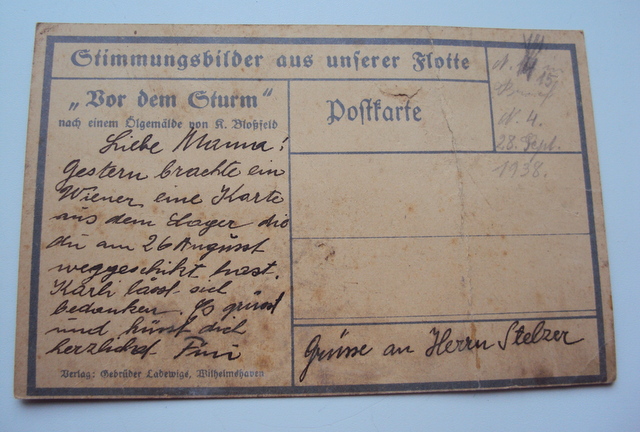 Stimmungsbilder aus unserer Flotte
„Vor dem Sturm“
nach einem Ölgemälde von K. Bloßfeld
Postkarte
Liebe Mama!
Gestern brachte ein
Wiener eine Karte
aus dem Lager die
du am 26 Augusst
weggeschikt hast.
Karli lässt sich
bedanken. Es grüsst
und küsst dich
herzlichst Fini
Grüsse an Herrn Stelzer
N. 4.
28. Sept.
1938.
Verlag: Gebrüder Ladewigs, Wilhelmshaven